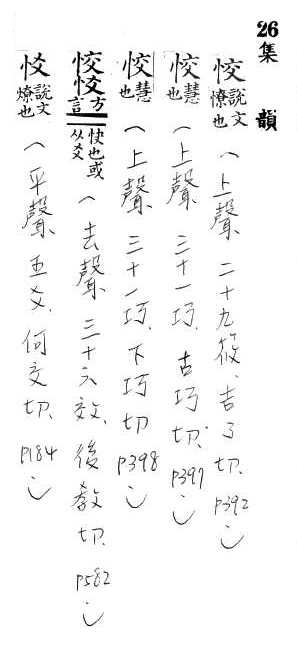 26 集韻
恔說文憭也（上聲 二十九筱、吉了切、p392）
恔慧也（上聲 三十一巧、古巧切、p397）
恔慧也（上聲 三十一巧、下巧切 p398）
恔㤊方言快也或从爻（去聲 三十六效、後教切、p582）
㤊說文憭也（平聲 五爻、何交切、p184）